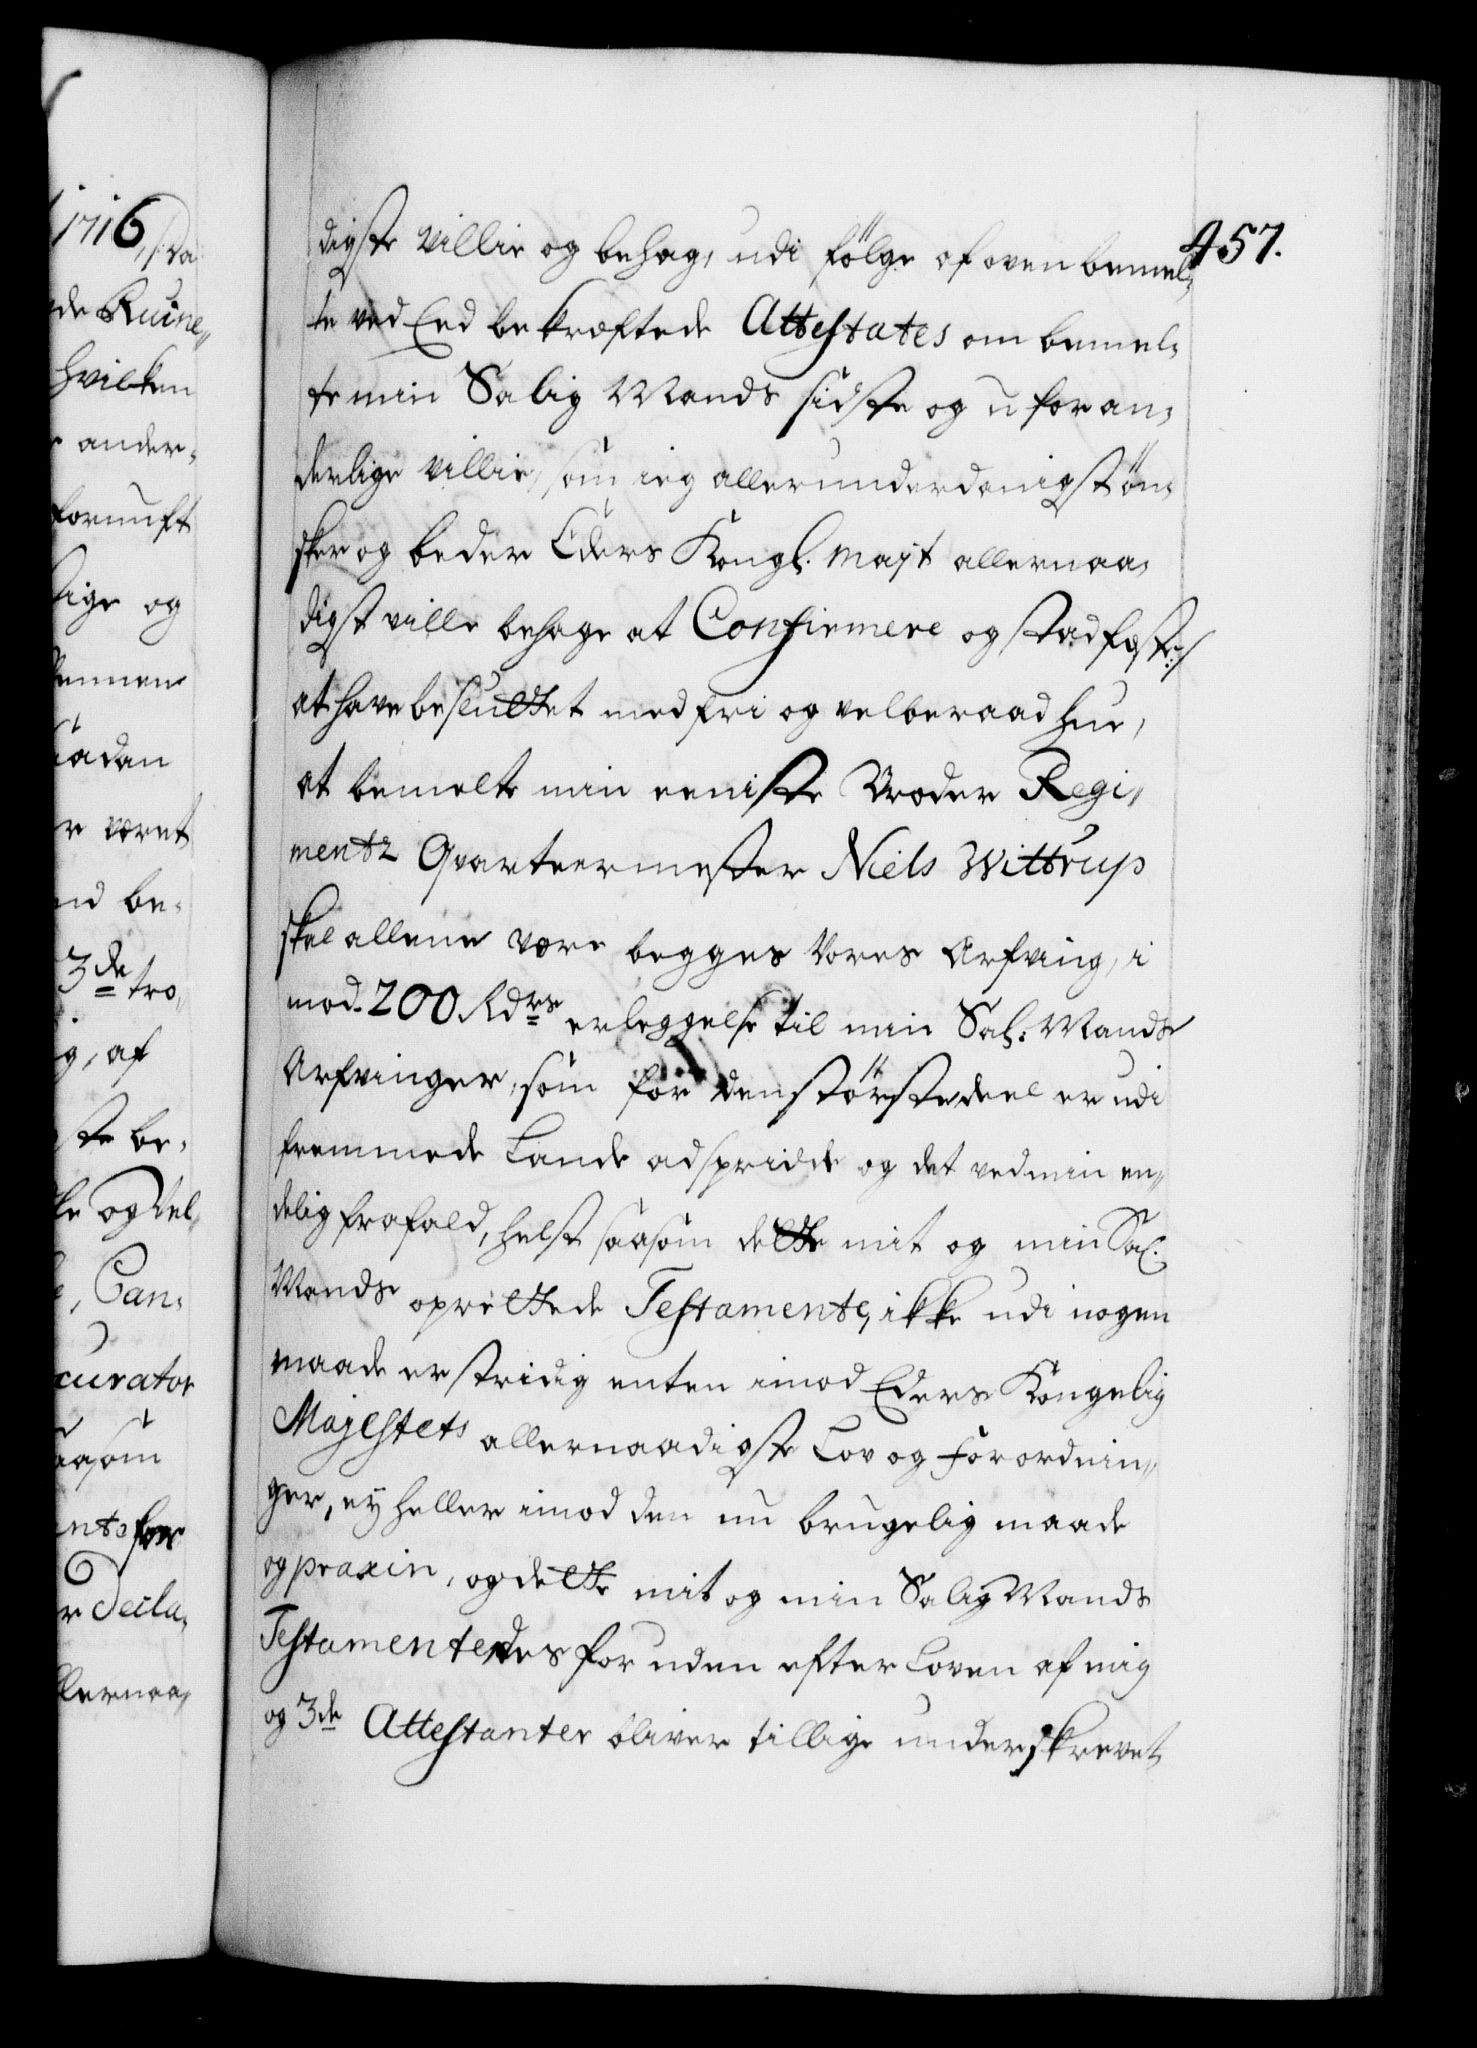 1716,
de Ruine„
hvilken
ander„
fornuft
lige og
kommen
saadan
r været
nd be„
3de tro„
g, af
ste be„
le og vel„
e, Can„
curator
aasom
nts for
r Decla„
llernaa„
457.
digste Villie og behag, udi fölge af oven bemel„
te ved Eed bekræftede Attestates om bemel„
te min Salig Mands sidste og uforan„
derlige villie, som ieg allerunderdanigst ön„
sker og beder Eders Kongl. Mayt allernaa„
digst ville behage at Confirmere og stadfæste :/
at have besluttet med fri og velberaad hue,
at bemelte min eeniste Broder Regi„
mentz Qvarteermester Niels Wittrup
skal allene være begges Vores Arfving, i
mod 200 Rdrs erleggelse til min Sal: Mands
Arfvinger, som for den störste deel er udi
fremmede Lande adspridde og det ved min en„
delig frafald, helst saasom dette mit og min Sal.
Mands oprettede Testamente, ikke udi nogen
maade er stridig enten imod Eders Kongelig
Majestets allernaadigste Lov og forordnin„
ger, ey heller imod den nu brugelig maade
og praxin, og dette mit og min Salig Mands
Testamente des foruden efter Loven af mig
og 3de Attestanter bliver tillige underskrevet